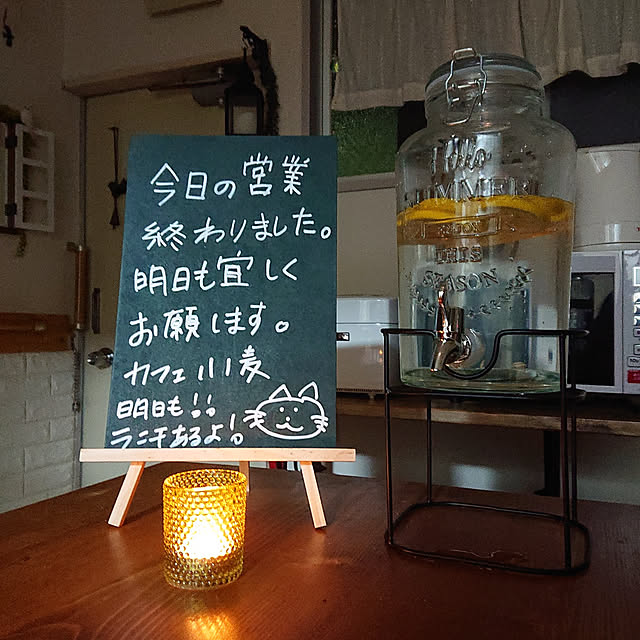 今日の営業
終わりました。
明日も宜しく
お願います。
カフェ小麦
明日も!!
ランチあるよ!
Hello
SUMMER
THIS
SEASON